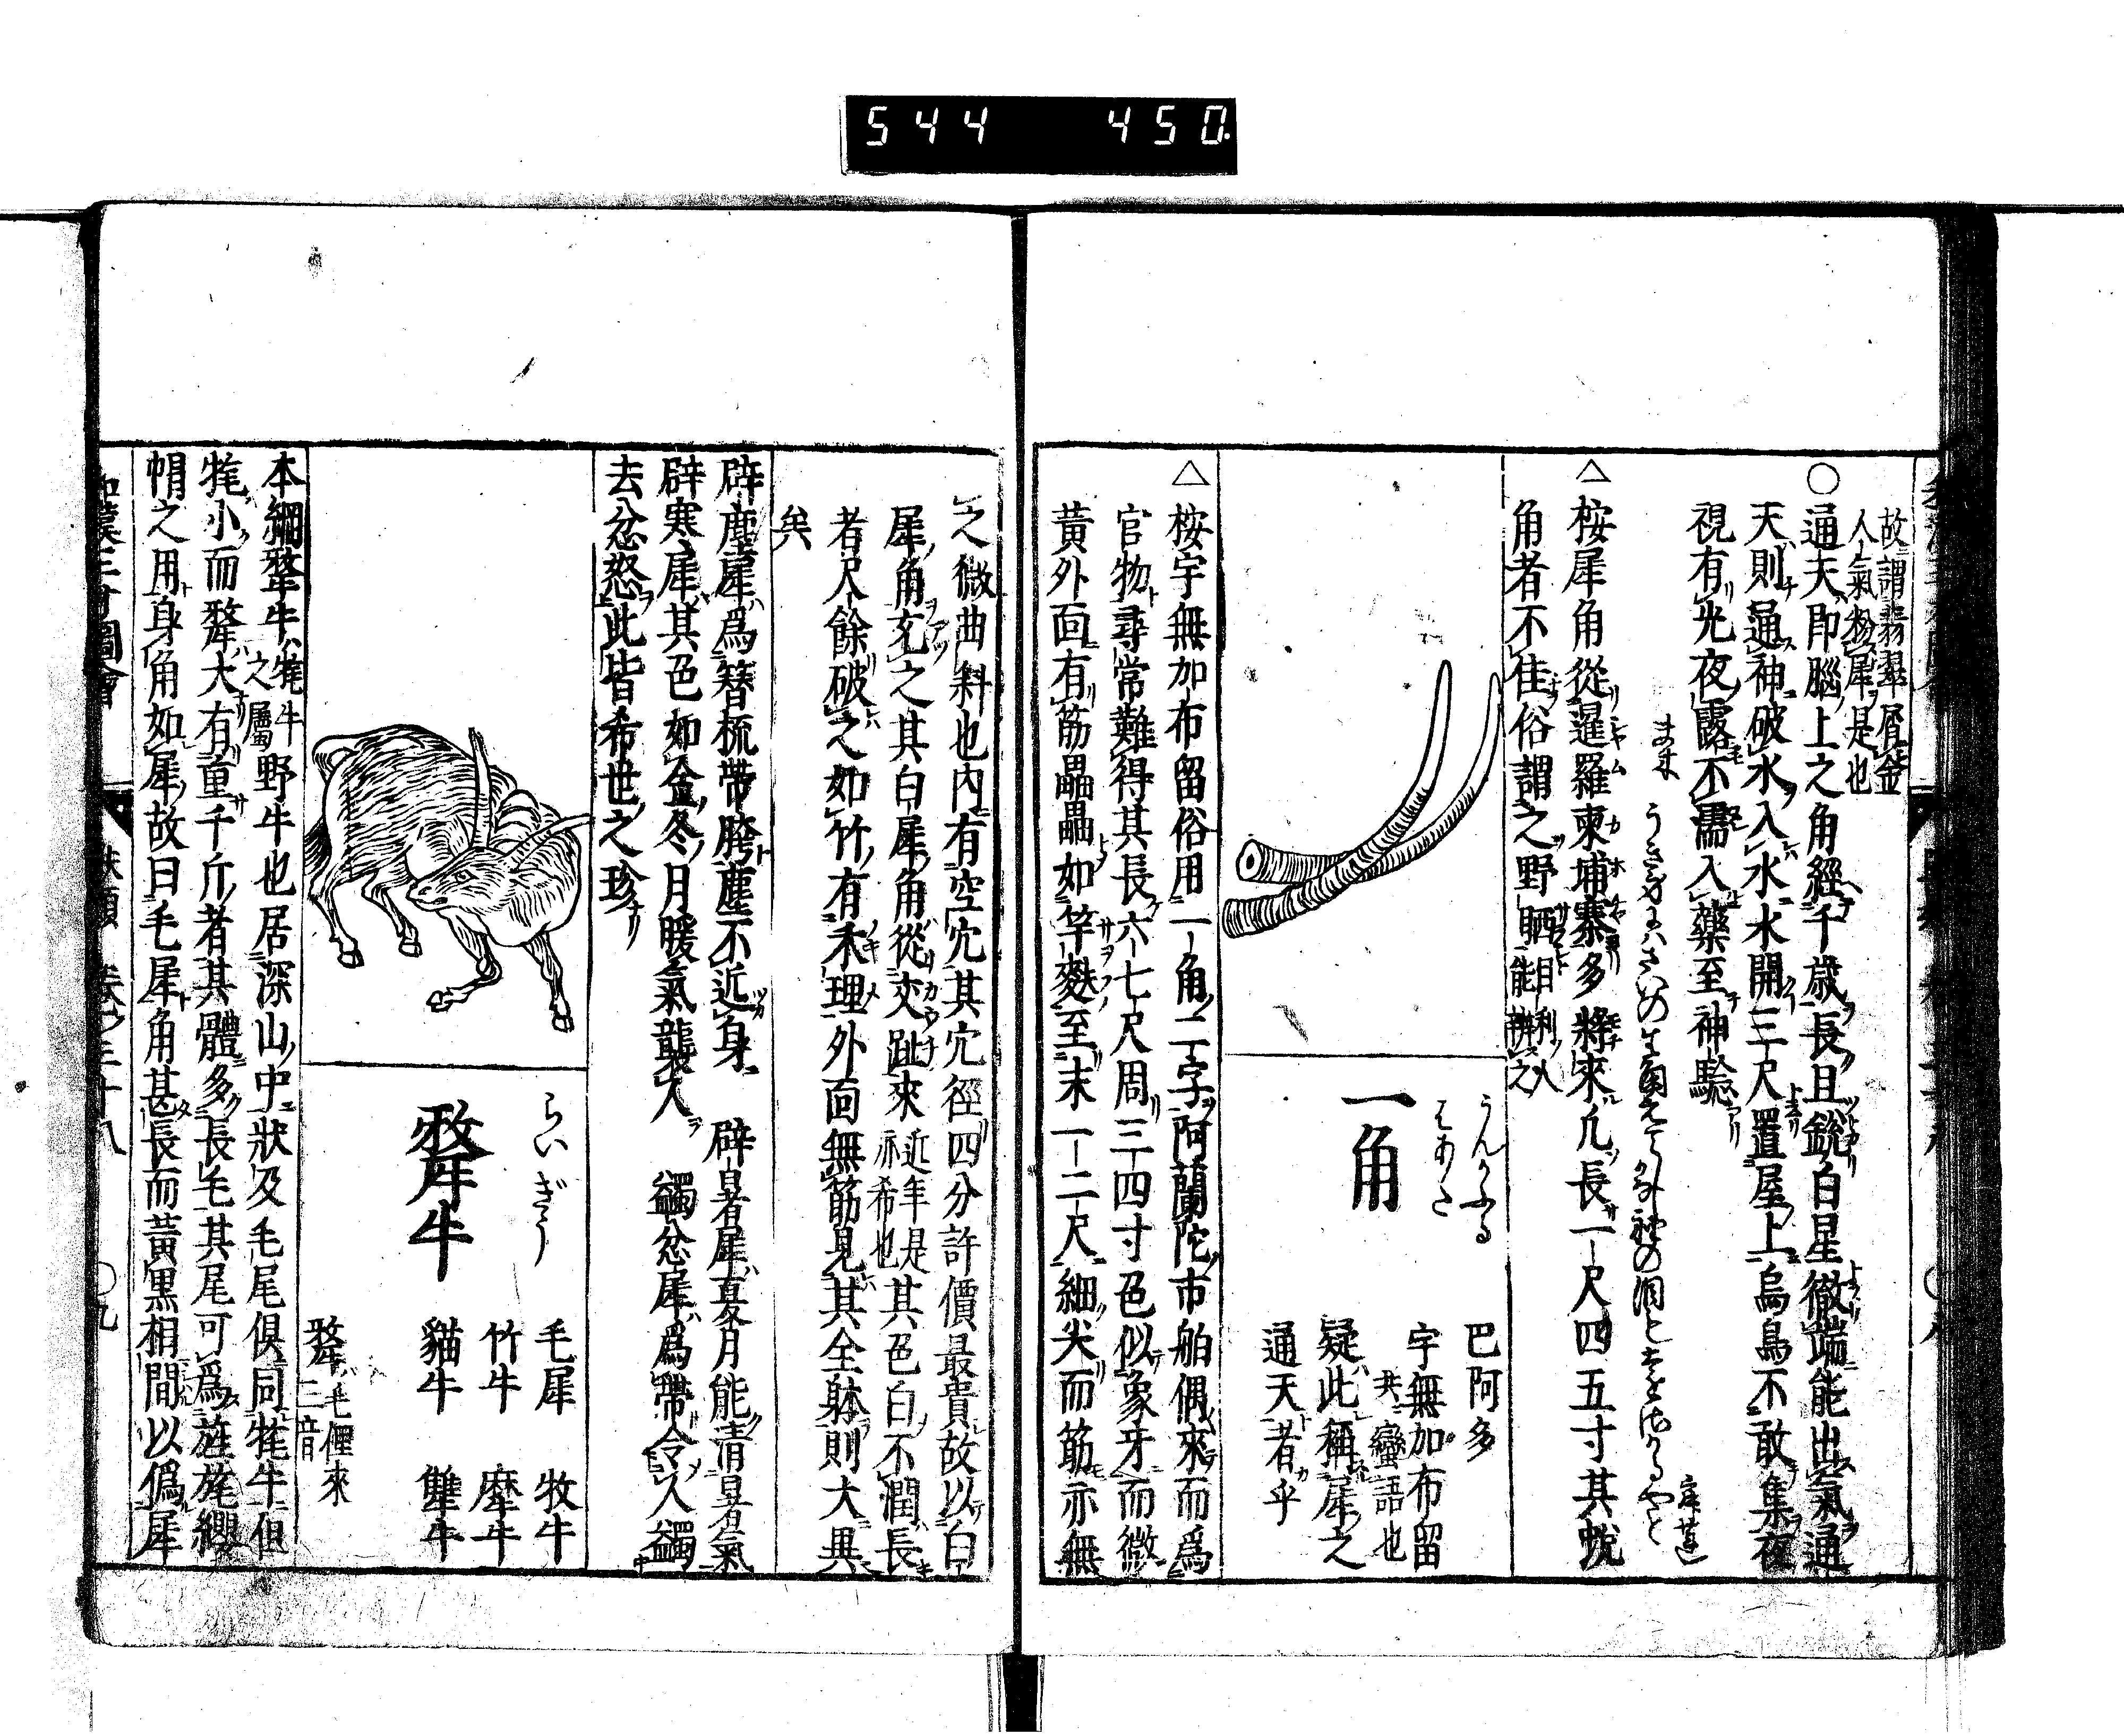 544 450
故謂翡翠屑金
人氣粉犀是也
○通天即腦上之角經千歲長且銳白星徹端能出氣通
天則通神破水入水水開三尺置屋上烏鳥不敢集夜
視有光夜露不濡入藥至神驗
△桉犀角從暹羅柬埔寨多將來凡長一尺四五寸其蛻
角者不佳俗謂之野晒目利人能辨之
一角
うんかふる
はあた
巴阿多
宇無加布留
共蠻語也
疑此稱犀之
通天者乎
△桉宇無加布留俗用一角二字阿蘭陀市舶偶來而為
官物尋常難得其長六七尺周三四寸色似象牙而微
黃外面有筋畾畾如竿麩至末一二尺細尖而筋亦無
之微曲斜也內有空穴其穴徑四分許價最貴故以白
犀角充之其白犀角從交趾來近年是亦希也其色白不潤長
者尺餘破之如竹有禾理外面無筋見其全躰則大異
矣
辟塵犀為簪梳帶胯塵不近身 辟暑犀夏月能清暑氣
辟寒犀其色如金冬月暖氣襲人 蠲忿犀為帶令人蠲
去忿怒此皆希世之珍
犛牛
らいぎう
毛犀 牧牛
竹牛 犘牛
貓牛 𤛿牛
犛毛俚來三音
本綱犛牛犛牛之屬野牛也居深山中狀及毛尾俱同牦牛但
牦小而犛大有重千斤者其體多長毛其尾可為旌旄纓
帽之用身角如犀故曰毛犀角甚長而黃黑相間以僞犀
和漢三才圖會 獸類 卷之三十八 ○九